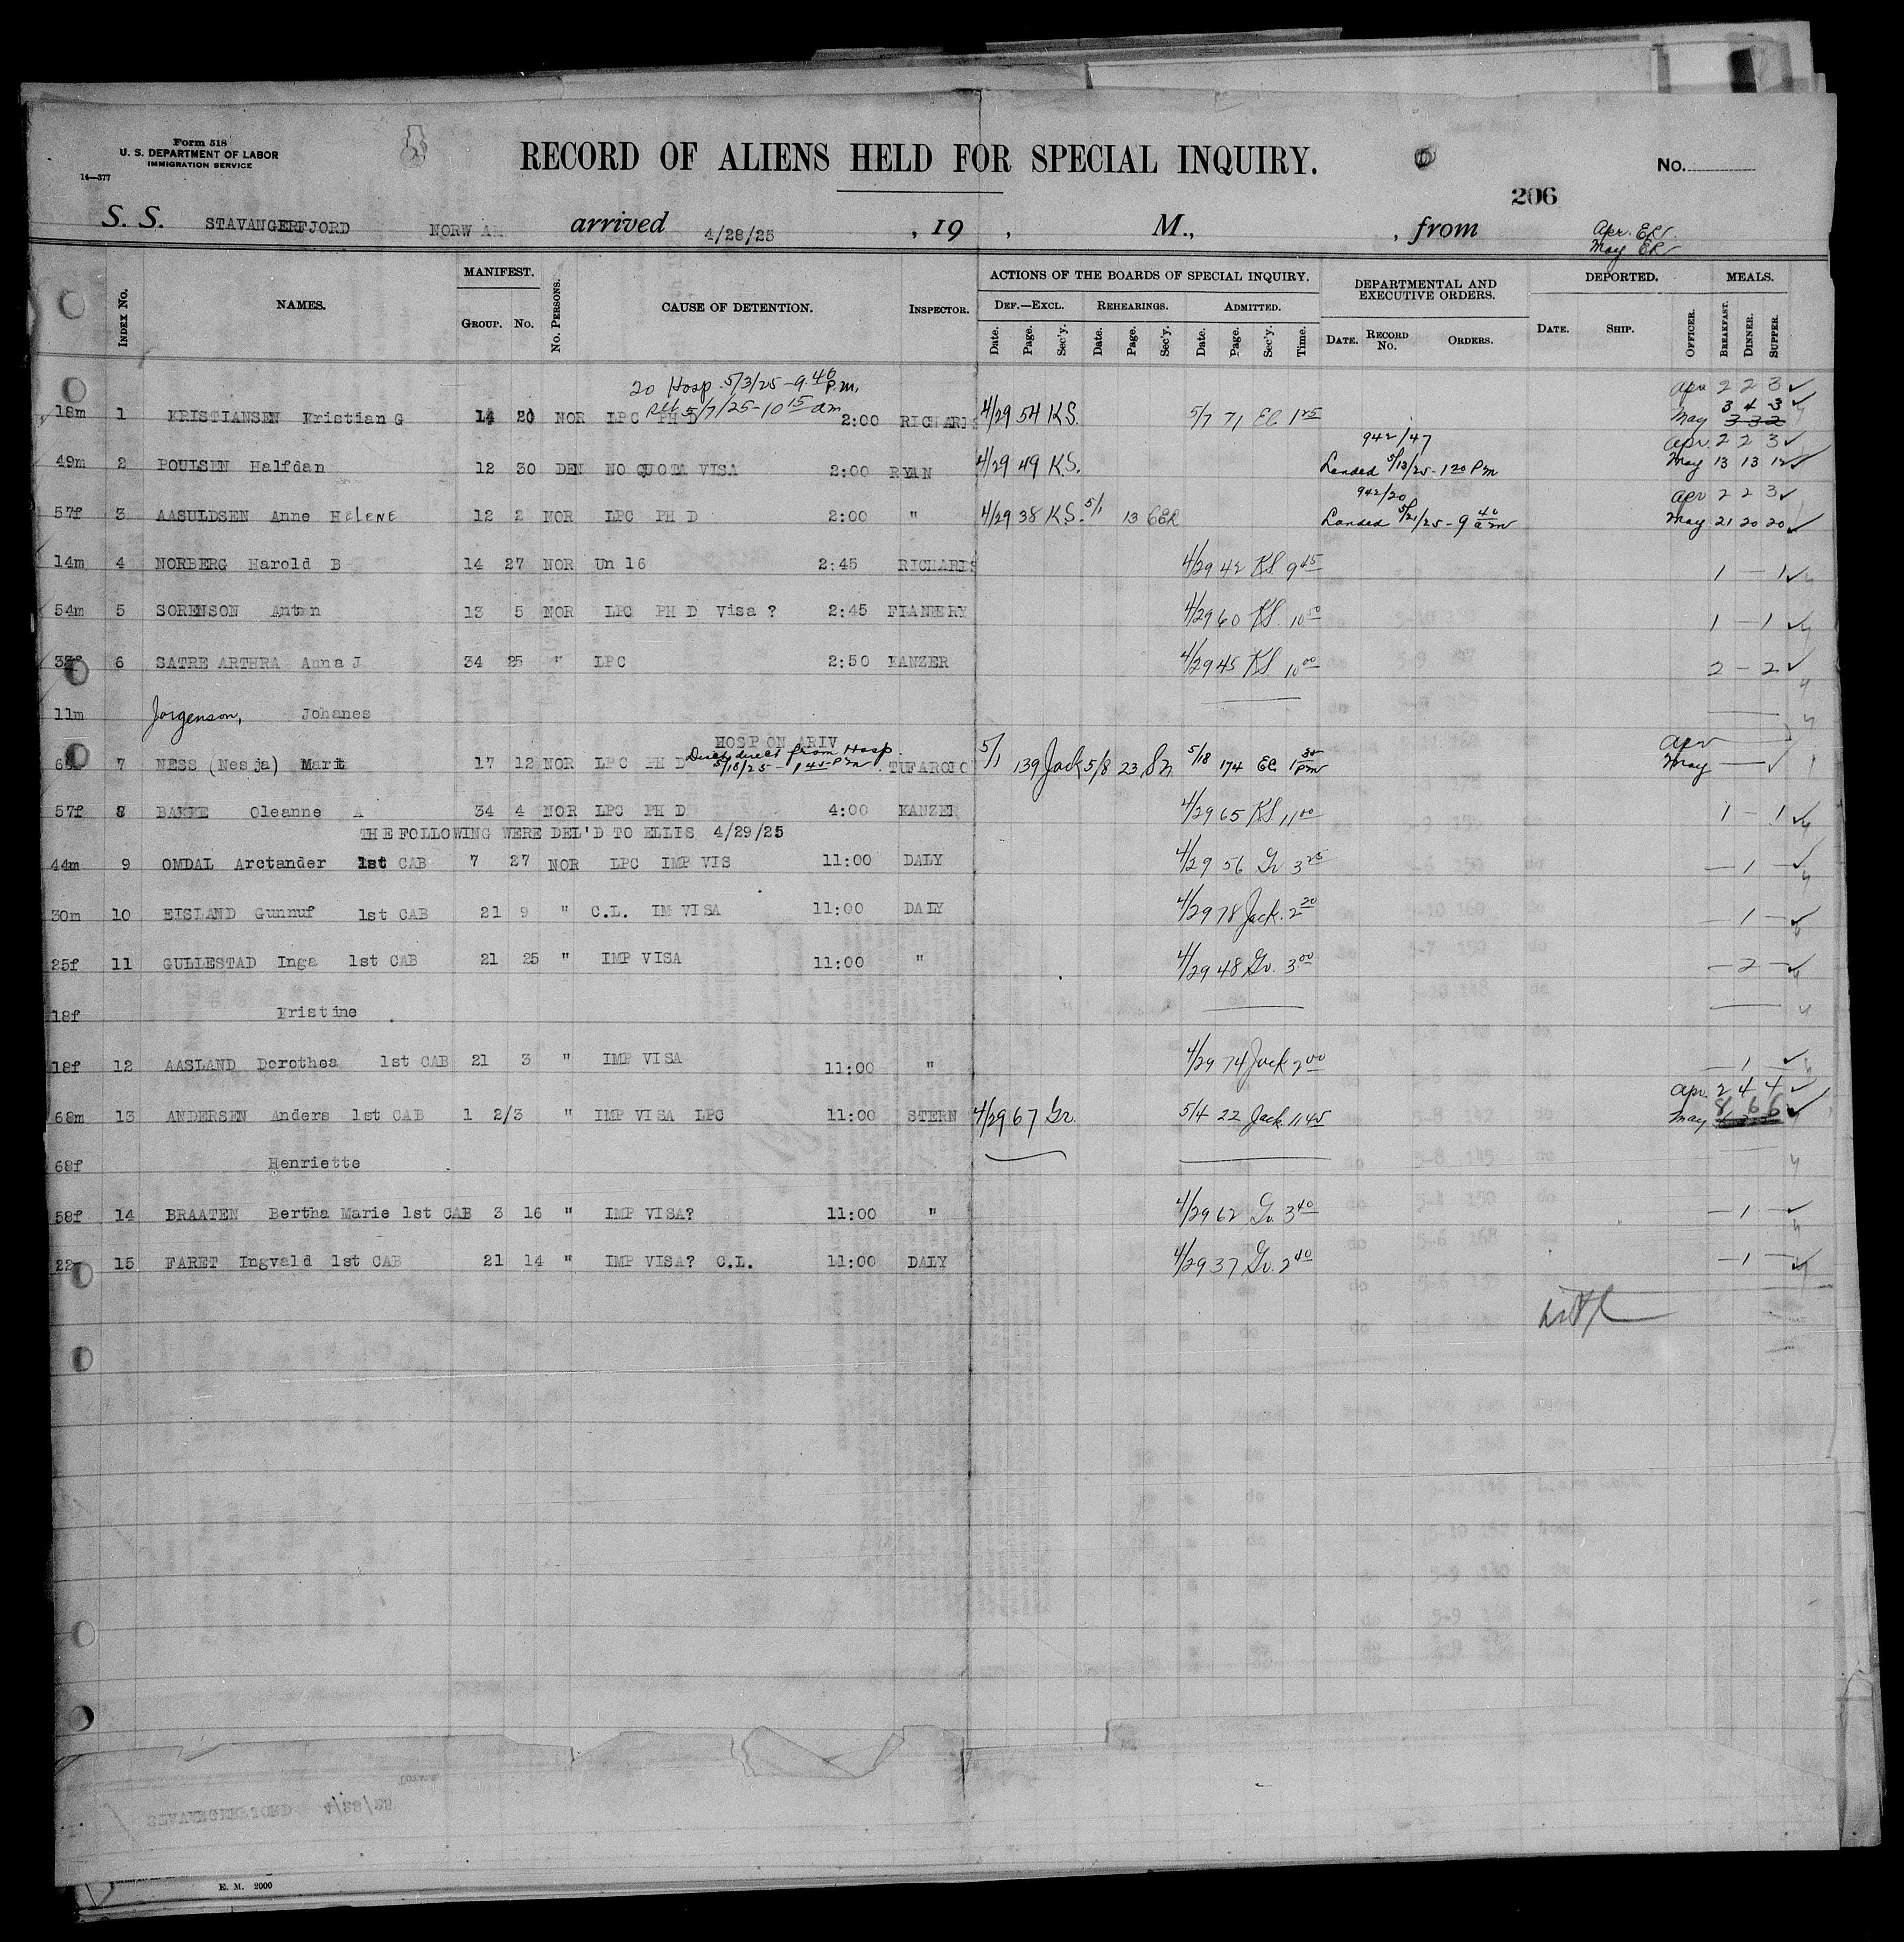 Form 518
U. S. DEPARTMENT OF LABOR
IMMIGRATION SERVICE
14—377
RECORD OF ALIENS HELD FOR SPECIAL INQUIRY.
No.
206
S. S. STAVANGERFJORD NORW AM arrived 4/28/25 , 19 , M., , from
Apr. ER
May ER
INDEX No. NAMES. MANIFEST. GROUP. No. No. PERSONS. CAUSE OF DETENTION. INSPECTOR. ACTIONS OF THE BOARDS OF SPECIAL INQUIRY. DEPARTMENTAL AND EXECUTIVE ORDERS. DEPORTED. MEALS.
DEF.—EXCL. REHEARINGS. ADMITTED.
Date. Page. Sec'y. Date. Page. Sec'y. Date. Page. Sec'y. Time. DATE. RECORD No. ORDERS. DATE. SHIP. OFFICER. BREAKFAST. DINNER. SUPPER.
20 Hosp. 5/3/25 - 9 40 P.m. Apr 2 2 3 ✓
5/7/25 - 10 15 am 3 4 3 ✓
18m 1 KRISTIANSEN Kristian G 14 20 NOR LPC PH D 2:00 RICHARDS 4/29 54 KS. 5/7 71 EC 1 25 May 3 3 2
942/47 Apr 2 2 3 ✓
49m 2 POULSEN Halfdan 12 30 DEN NO QUOTA VISA 2:00 RYAN 4/29 49 KS. Landed 5/13/25 - 1 20 Pm May 13 13 12 ✓
942/20 Apr 2 2 3 ✓
57f 3 AASULDSEN Anne HELENE 12 2 NOR LPC PH D 2:00 " 4/29 38 KS. 5/1 13 GER Landed 5/21/25 - 9 40 am May 21 20 20 ✓
14m 4 NORBERG Harold B 14 27 NOR Un 16 2:45 RICHARDS 4/29 42 KS 9 45 1 — 1 ✓
54m 5 SORENSON Anton 13 5 NOR LPC PH D Visa ? 2:45 FLANNERY 4/29 60 KS. 10 50 1 — 1 ✓
6 SATRE ARTHRA Anna J 34 25 " LPC 2:50 KANZER 4/29 45 KS 10 00 2 — 2 ✓
11m Jorgenson, Johanes
HOSP ON ARIV
direct from Hosp. Apr
5/18/25 - 1 45 Pm
7 NESS (Nesja) Marit 17 12 NOR LPC PH D TUFAROLO 5/1 139 Jack 5/8 23 Sn 5/18 174 EC 1 35 Pm May — ✓
57f 8 BAKKE Oleanne A 34 4 NOR LPC PH D 4:00 KANZER 4/29 65 KS 11 00 1 — 1 ✓
THE FOLLOWING WERE DEL'D TO ELLIS 4/29/25
44m 9 OMDAL Arctander 1st CAB 7 27 NOR LPC IMP VIS 11:00 DALY 4/29 56 Gr 3 25 — 1 — ✓
30m 10 EISLAND Gunnuf 1st CAB 21 9 " C.L. IM VISA 11:00 DALY 4/29 78 Jack. 2 20 — 1 — ✓
25f 11 GULLESTAD Inga 1st CAB 21 25 " IMP VISA 11:00 " 4/29 48 Gr. 3 00 — 2 — ✓
18f Kristine
18f 12 AASLAND Dorothea 1st CAB 21 3 " IMP VISA 11:00 " 4/29 74 Jack 2 00 — 1 — ✓
Apr. 2 4 4 ✓
68m 13 ANDERSEN Anders 1st CAB 1 2/3 " IMP VISA LPC 11:00 STERN 4/29 67 Gr. 5/4 22 Jack. 11 45 May 8 6 6 ✓
68f Henriette
58f 14 BRAATEN Bertha Marie 1st CAB 3 16 " IMP VISA? 11:00 " 4/29 62 Gr. 3 40 — 1 — ✓
22 15 FARET Ingvald 1st CAB 21 14 " IMP VISA? C.L. 11:00 DALY 4/29 37 Gr. 2 40 — 1 — ✓
STAVANGERFJORD 4/28/25
E. M. 2000